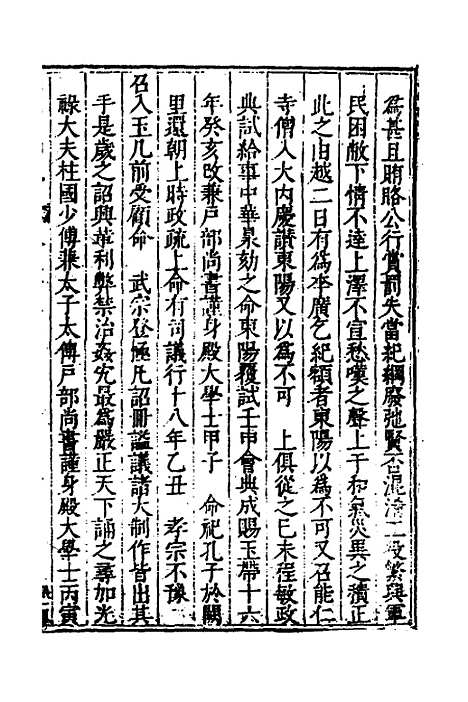 爲甚且賄賂公行賞罰失當紀綱廢弛賢否混淆工役繁興軍
民困敝下情不達上澤不宣愁嘆之聲上干和氣災異之積正
此之由越二日有爲李廣乞祀額者東陽以爲不可又召能仁
寺僧入大内慶讃東陽又以爲不可　上俱從之巳未程敏政
典試給事中華泉劾之命東陽覆試壬申會典成賜玉帶十六
年癸亥改兼戶部尚書謹身殿大學士甲子　命祀孔子於闕
里還朝上時政疏上命有司議行十八年乙丑　孝宗不豫
召入玉几前受顧命　武宗登極凡詔冊謚議諸大制作皆出其
手是歲之詔興革利弊禁治姦宄最爲嚴正天下誦之尋加光
祿大夫柱國少傅兼太子太傅戶部尚書謹身殿大學士丙寅